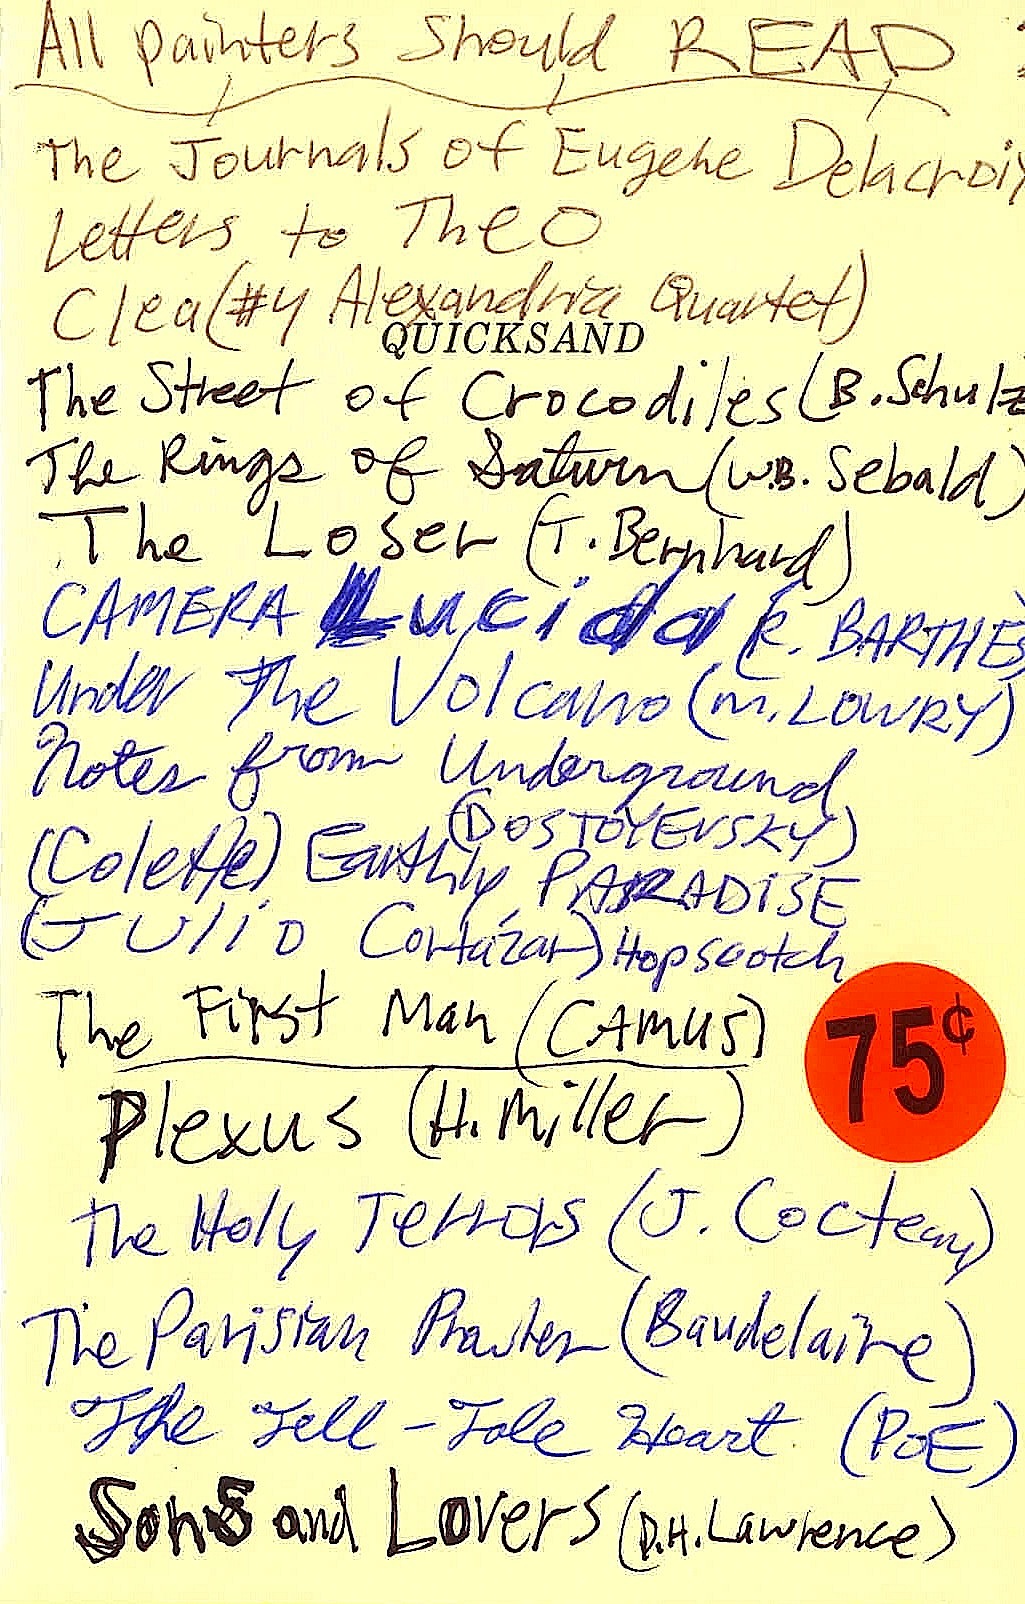 All painters Should READ :
The Journals of Eugene Delacroix
Letters to Theo
Clea (#4 Alexandria Quartet)
QUICKSAND
The Street of Crocodiles (B. Schulz
The Rings of Saturn (W.B. Sebald)
The Loser (T. Bernhard)
CAMERA Lucida (R. BARTHES)
Under The Volcano (M. LOWRY)
Notes from Underground
(DOSTOYEVSKY)
(Colette) Earthly PARADISE
(JULIO Cortázar) Hopscotch
The First Man (CAMUS)
75¢
Plexus (H. Miller)
The Holy Terrors (J. Cocteau)
The Parisian Prowler (Baudelaire)
The Tell-Tale Heart (POE)
Sons and Lovers (D.H. Lawrence)